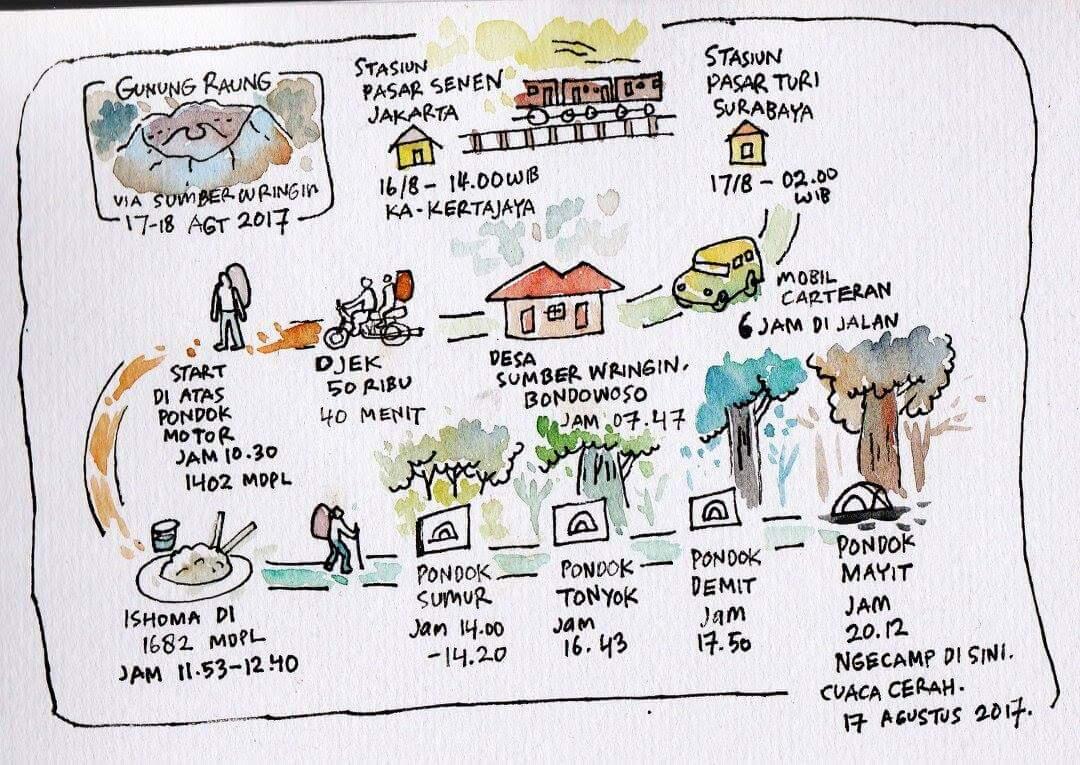 GUNUNG RAUNG
VIA SUMBERWRINGIN
17-18 AGT 2017
STASIUN
PASAR SENEN
JAKARTA
16/8 - 14.00 WIB
KA-KERTAJAYA
STASIUN
PASAR TURI
SURABAYA
17/8 - 02.00
WIB
MOBIL
CARTERAN
6 JAM DI JALAN
DESA
SUMBER WRINGIN.
BONDOWOSO
JAM 07.47
OJEK
50 RIBU
40 MENIT
START
DI ATAS
PONDOK
MOTOR
JAM 10.30
1402 MDPL
ISHOMA DI
1682 MDPL
JAM 11.53-12.40
PONDOK
SUMUR
Jam 14.00
-14.20
PONDOK
TONYOK
Jam
16.43
PONDOK
DEMIT
Jam
17.50
PONDOK
MAYIT
JAM
20.12
NGECAMP DI SINI.
CUACA CERAH.
17 AGUSTUS 2017.